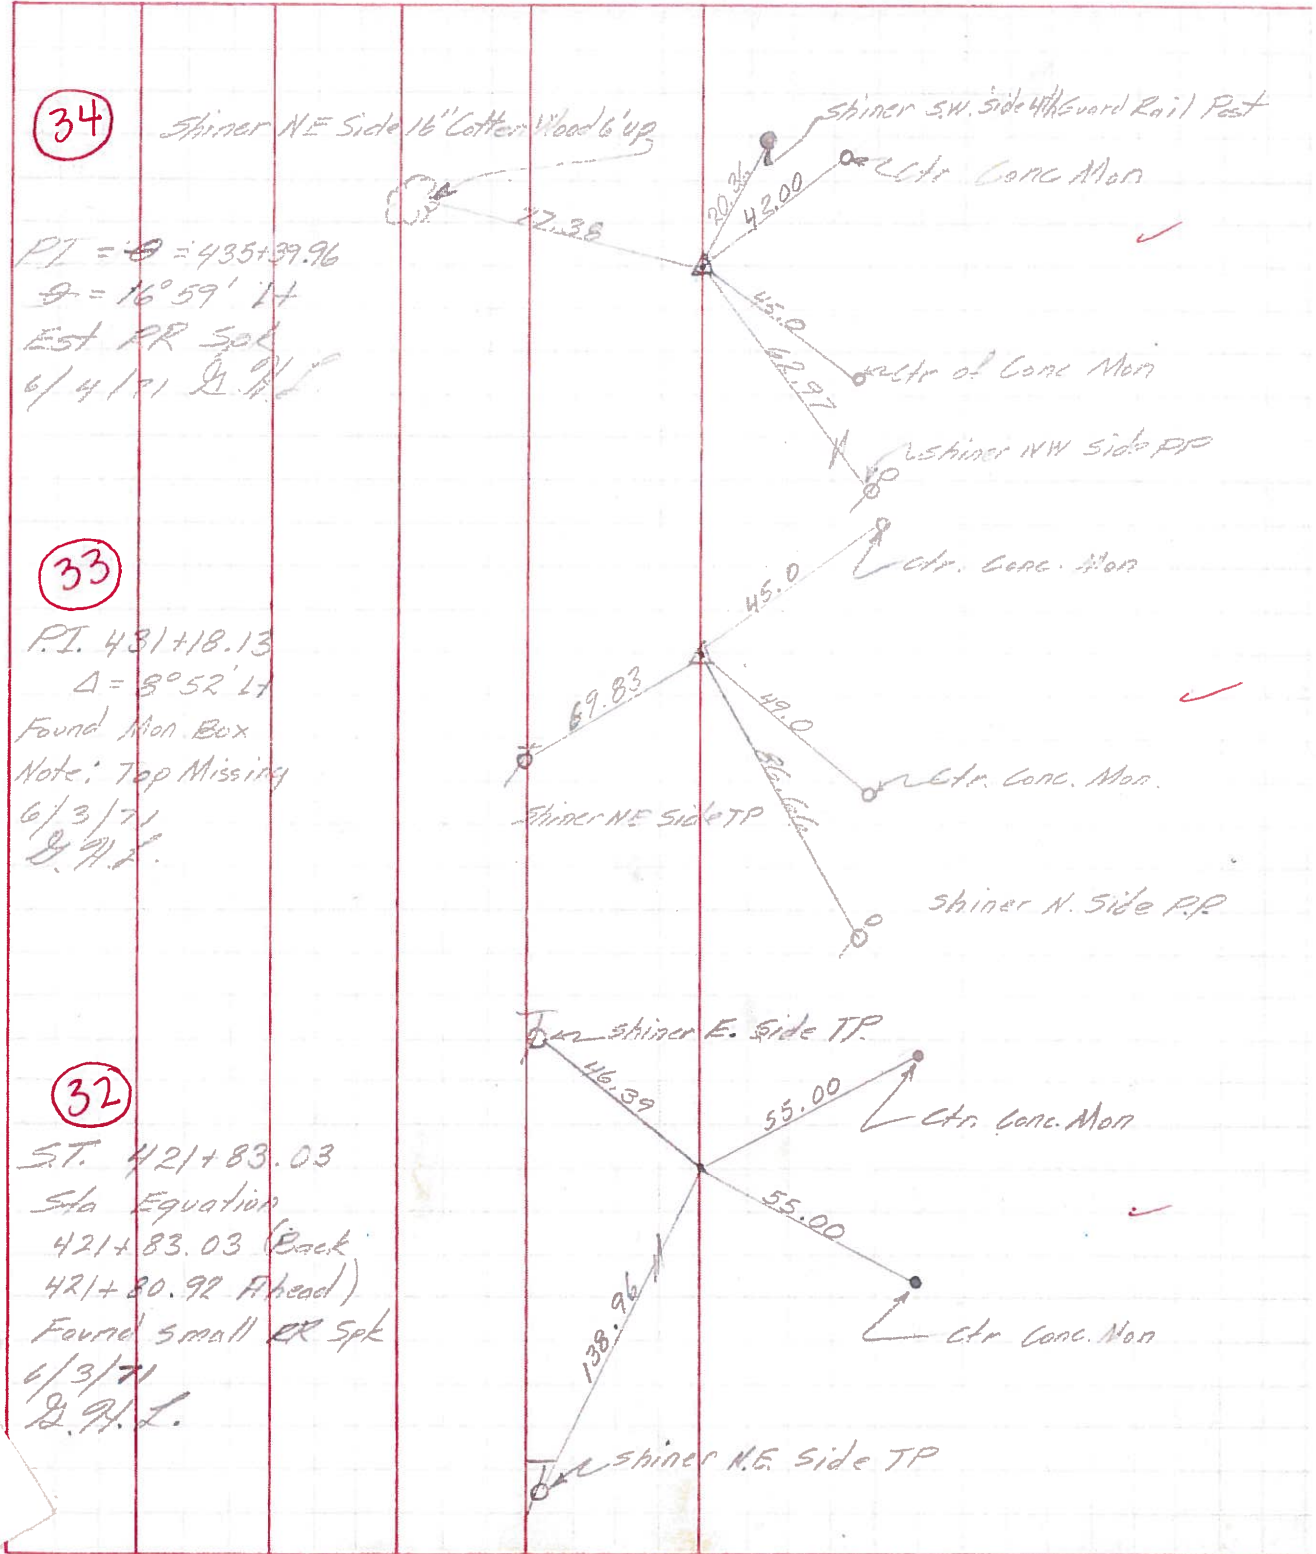 34
Shiner NE Side 16" Cotten Wood 6' up
shiner S.W. Side 4th Guard Rail Post
Ctr Conc Mon
20.36
42.00
PI = = 435+39.96
= 16°59' Lt
Est RR Spk
6/4/71 G.H.L.
45.0
Ctr of Conc Mon
62.97
shiner NW Side PP
33
45.0
Ctr. Conc. Mon
P.I. 431+18.13
Δ = 8°52' Lt
Found Mon Box
Note: Top Missing
6/3/71
G.H.L.
69.83
49.0
86.66
Ctr. Conc. Mon.
Shiner NE Side TP
Shiner N. Side P.P.
32
shiner E. Side TP.
46.39
55.00
Ctr. Conc. Mon
S.T. 421+83.03
Sta Equation
421+83.03 (Back
421+80.92 Ahead)
Found small RR Spk
6/3/71
G.H.L.
55.00
Ctr Conc. Mon
138.96
shiner N.E. Side TP